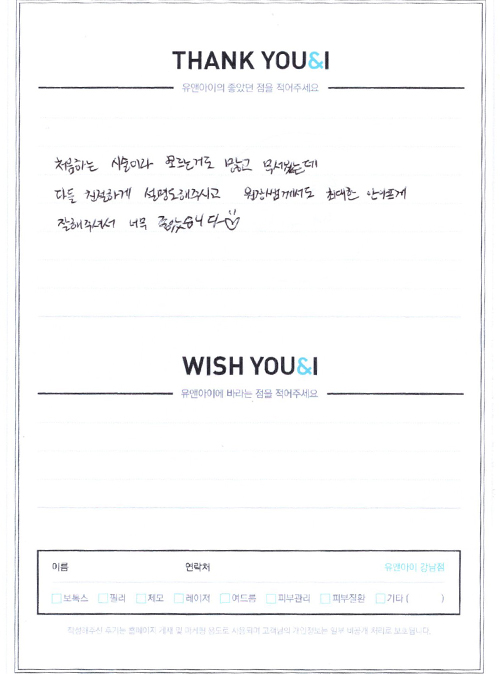 THANK YOU&I
유앤아이의 좋았던 점을 적어주세요
처음하는 시술이라 모르는거도 많고 무서웠는데
다들 친절하게 설명도해주시고 원장쌤께서도 최대한 안아프게
잘해주셔서 너무 좋았습니다
WISH YOU&I
유앤아이에 바라는 점을 적어주세요
이름 연락처 유앤아이 강남점
보톡스 필러 제모 레이저 여드름 피부관리 피부질환 기타 ( )
작성해주신 후기는 홈페이지 게재 및 마케팅 용도로 사용되며 고객님의 개인정보는